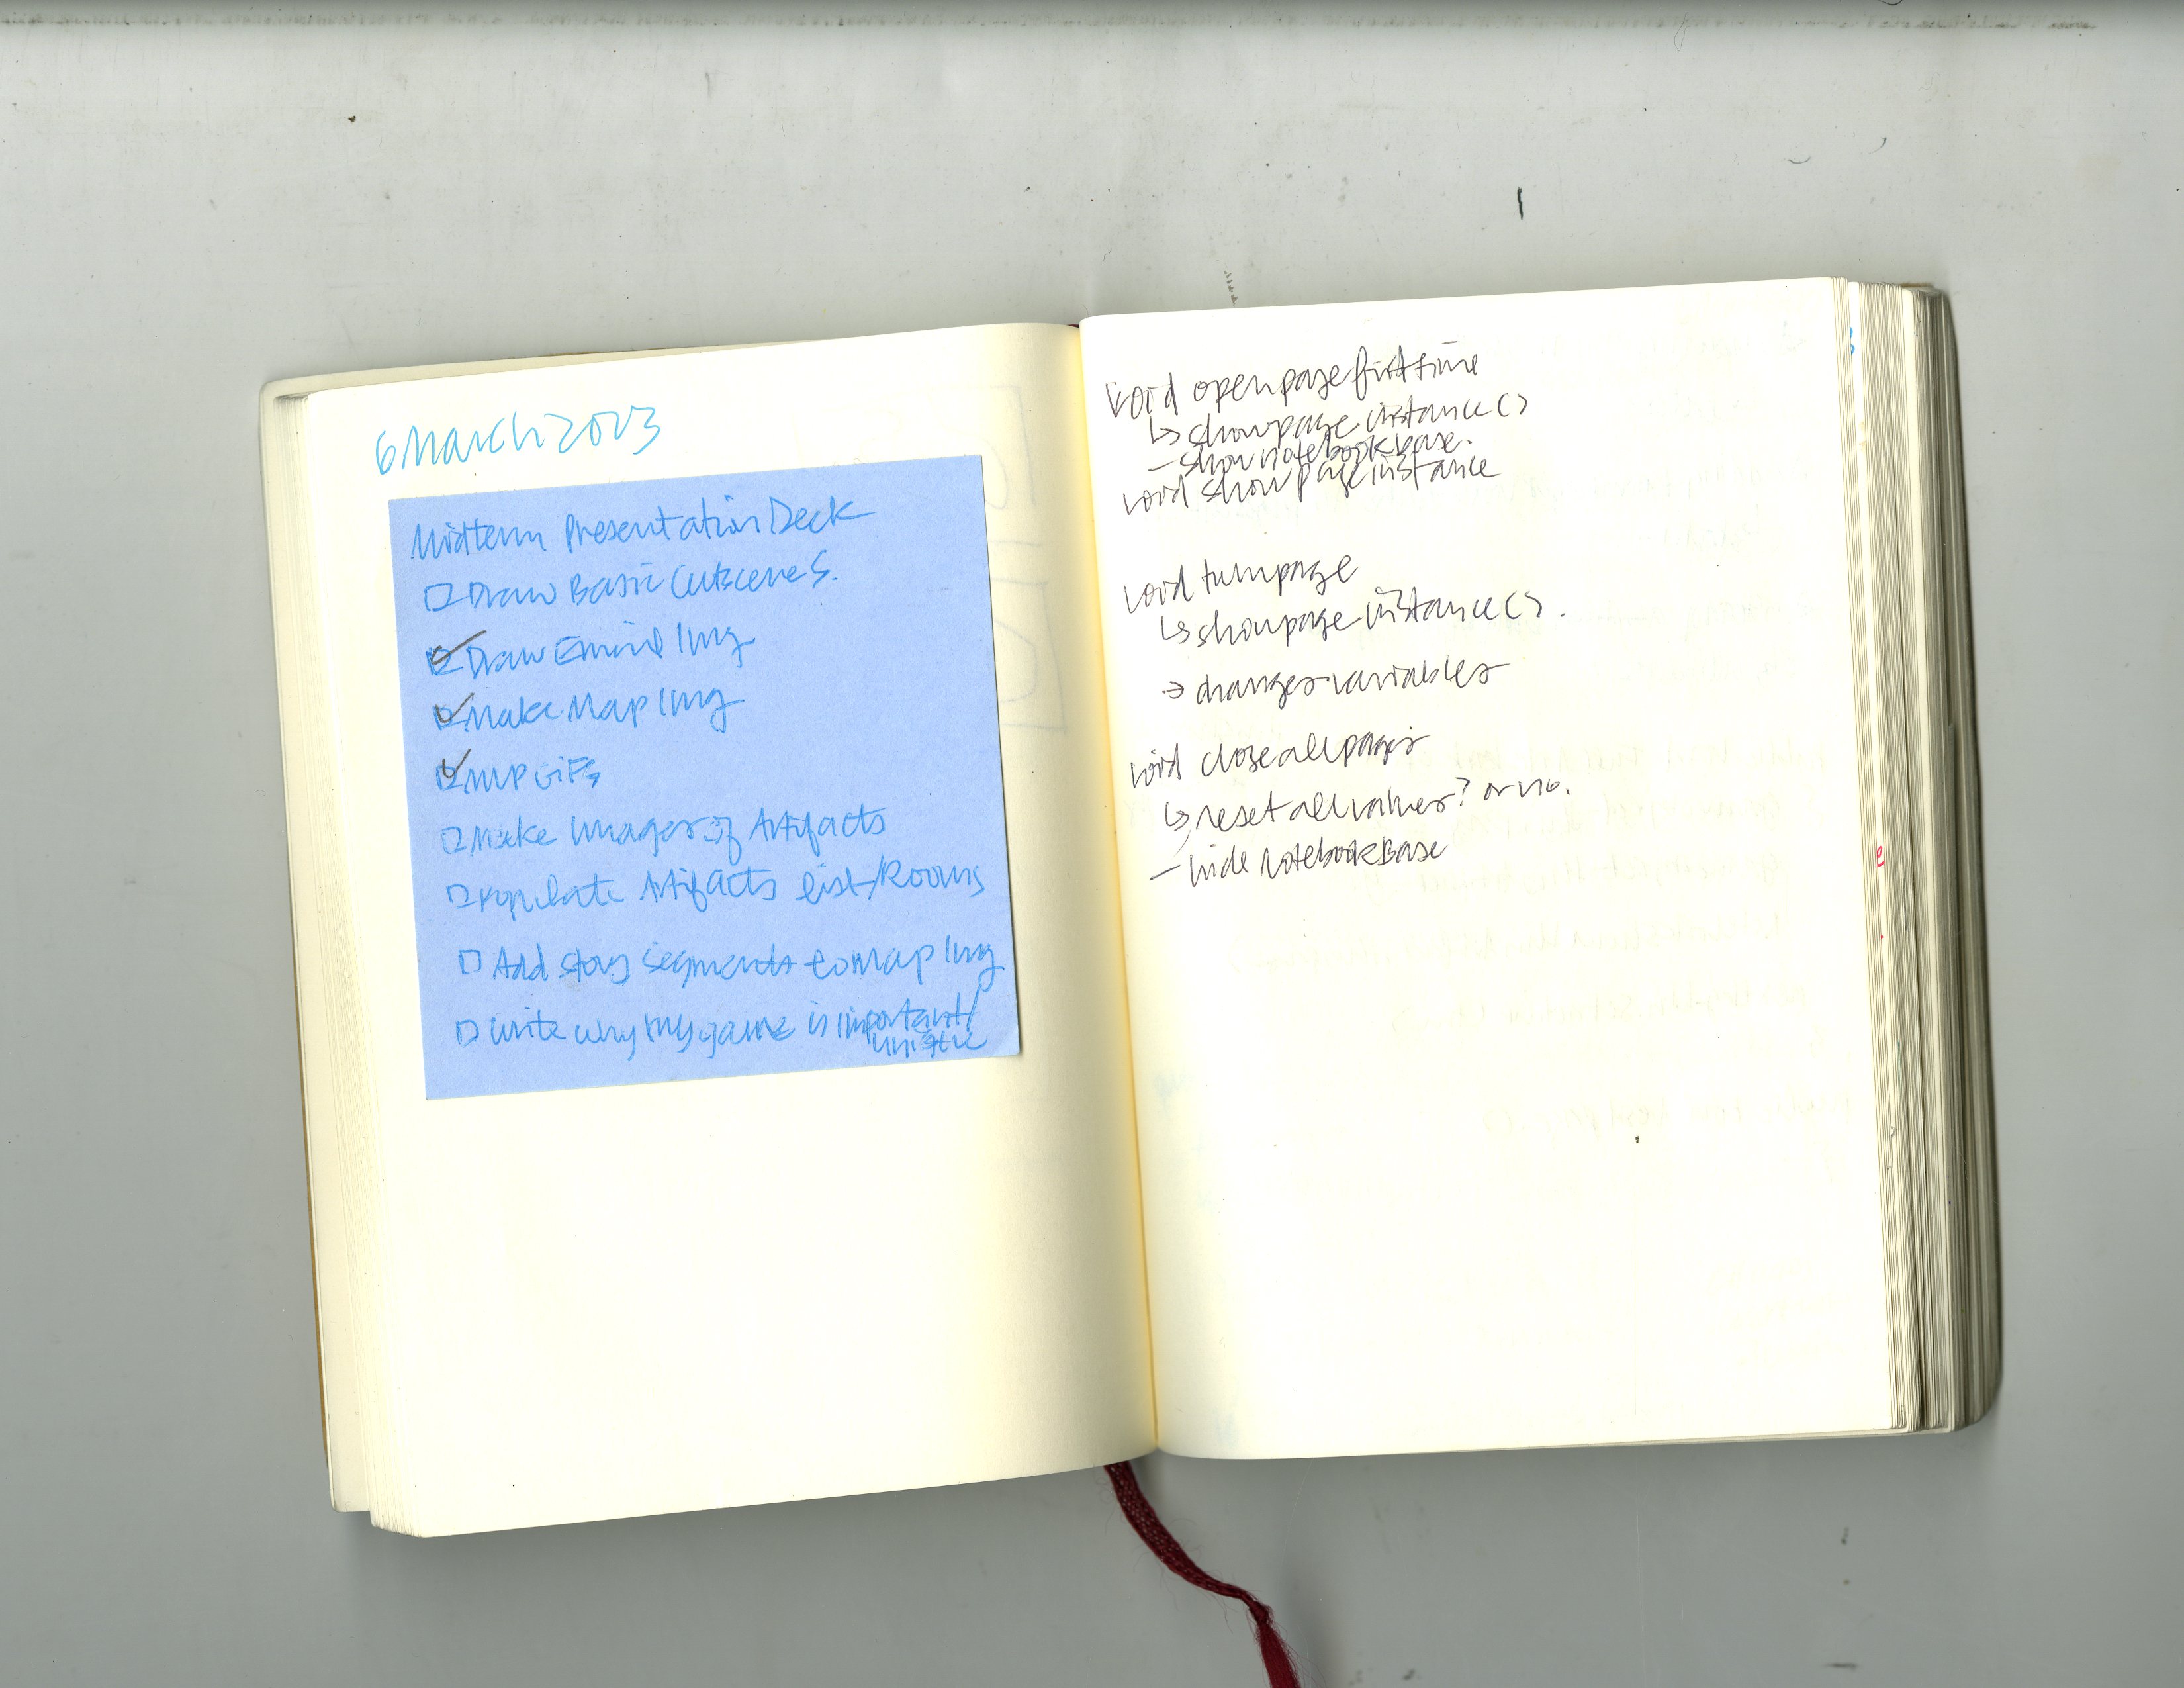 6 March 2023
Midterm Presentation Deck
Draw Basic Cutscenes.
Draw Email Img
Make Map Img
MVP GIFs
Make Images of Artifacts
Populate Artifacts list/Rooms
Add story segments to map Img
Write why my game is important/
unique
void openpagefirsttime
↳ showpageinstance()
- show notebookbase.
void showpageinstance
void turnpage
↳ showpageinstance().
→ changes variables
void closeallpages
↳ reset all values? or no.
- hide notebookBase